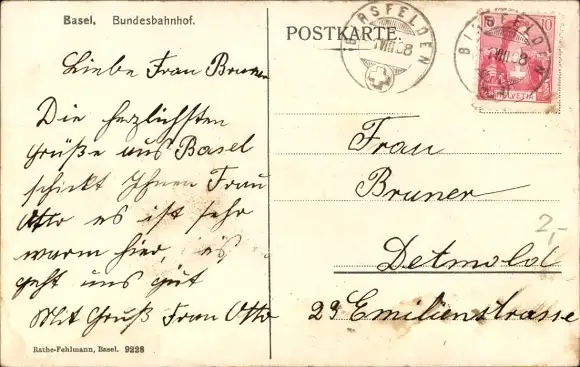 Basel. Bundesbahnhof.
Liebe Frau Bruner
Die herzlichsten
Grüße aus Basel
schickt Ihnen Frau
Otto es ist sehr
warm hier, es
geht uns gut
Mit Gruß Frau Otto
Rathe-Fehlmann, Basel. 9228
POSTKARTE
BIRSFELDEN
VIII.08
BIRSFELDEN
VIII.08
10
HELVETIA
Frau
Bruner
Detmold
29 Emilienstrasse
2,-